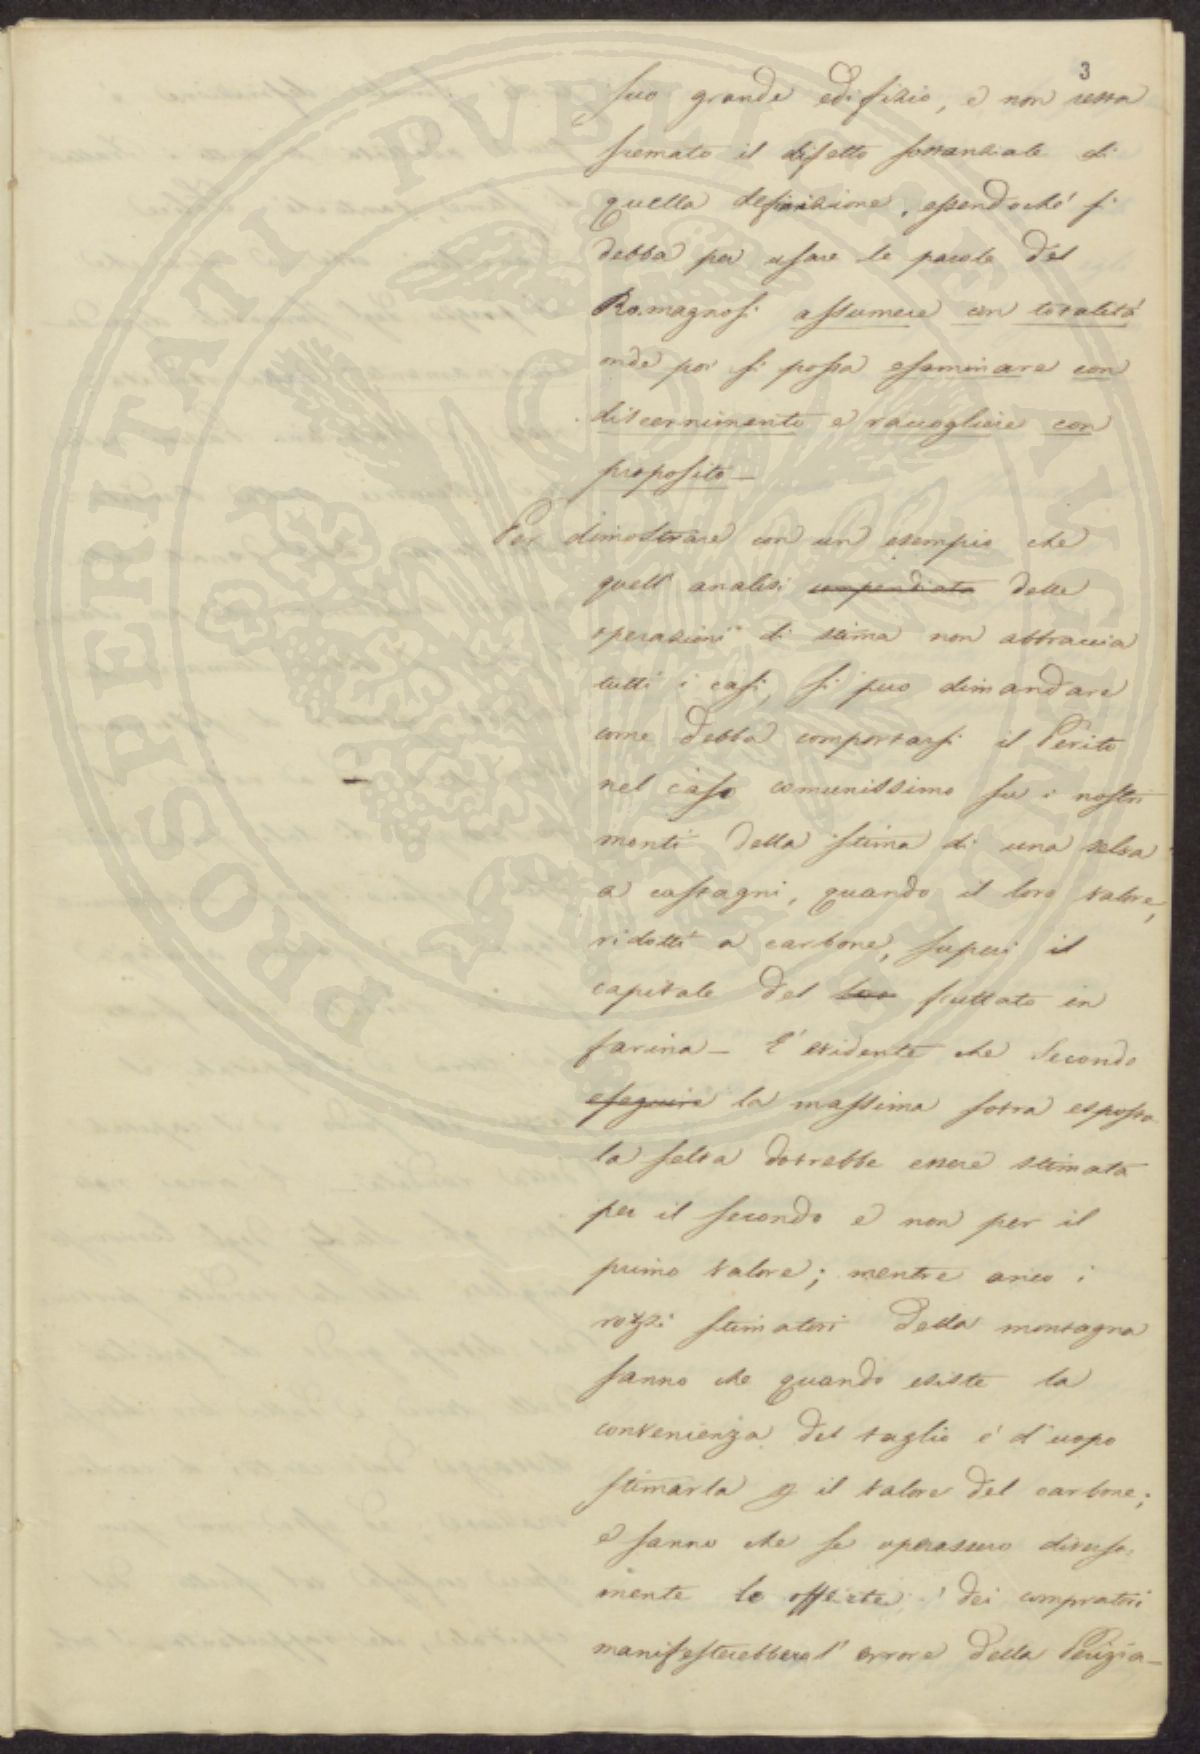 3
suo grande edifizio, e non resta
scemato il difetto sostanziale di
quella definizione, essendochè si
debba per usare le parole del
Romagnosi assumere con totalità
onde poi si possa esaminare con
discernimento e raccogliere con
proposito –
Per dimostrare con un esempio che
quell'analisi compendiata delle
operazioni di stima non abbraccia
tutti i casi, si può dimandare
come debba comportarsi il Perito
nel caso comunissimo su i nostri
monti della stima di una selva
a castagni, quando il loro valore,
ridotti a carbone, superi il
capitale del loro fruttato in
farina – È evidente che secondo
eseguire la massima sovra esposta
la selva dovrebbe essere stimata
per il secondo e non per il
primo valore; mentre anco i
rozzi stimatori della montagna
sanno che quando esiste la
convenienza del taglio è d'uopo
stimarla il valore del carbone;
e sanno che se operassero diversa-
mente le offerte dei compratori
manifesterebbero l'errore della Perizia –
PROSPERITATI PVBLICAE AVGENDAE